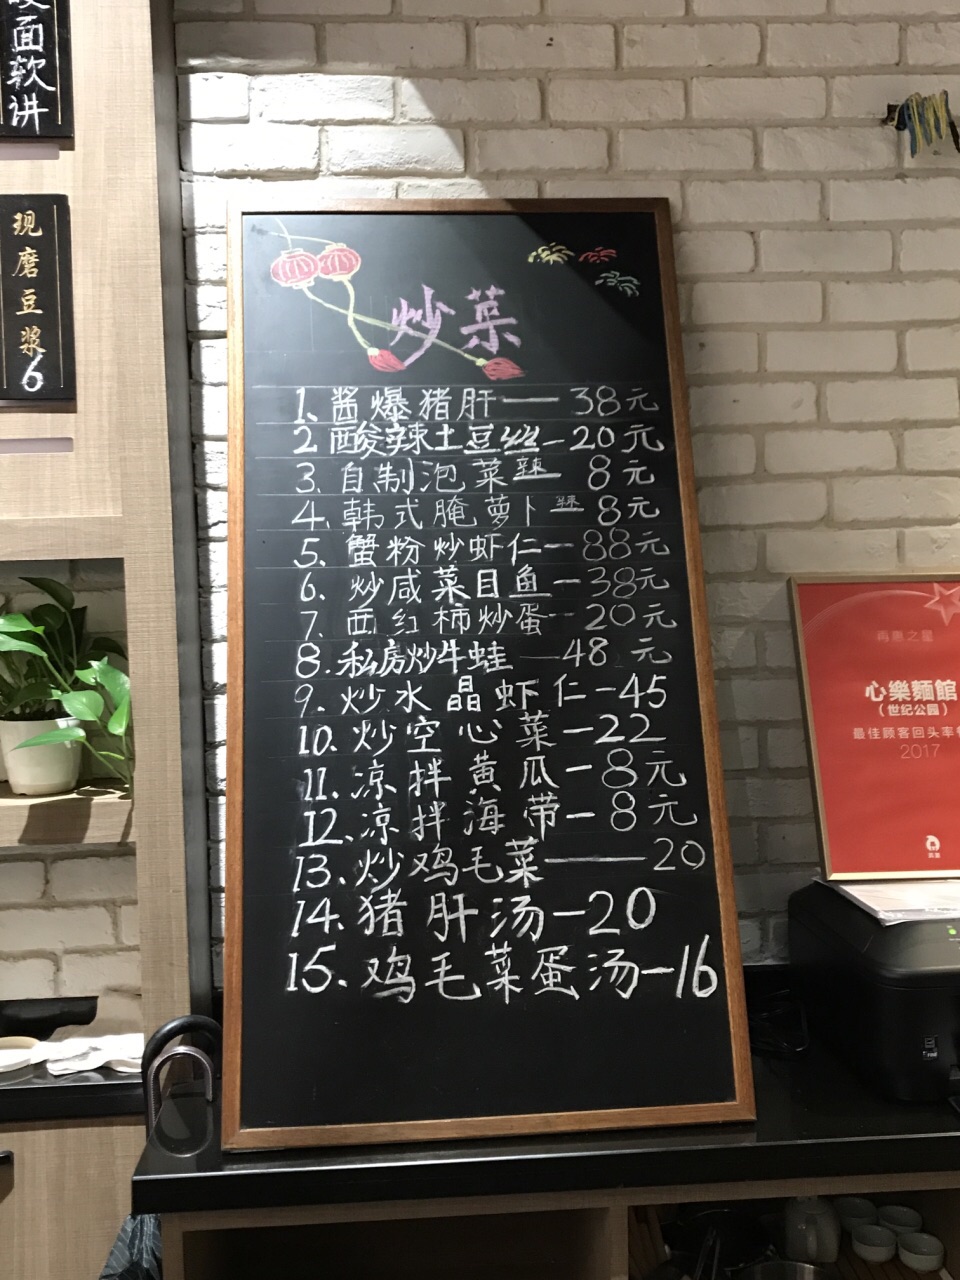 面软讲
现磨豆浆
6
炒菜
1、酱爆猪肝——38元
2、酸辣土豆丝—20元
3、自制泡菜辣—8元
4、韩式腌萝卜辣 8元
5、蟹粉炒虾仁—88元
6、炒咸菜目鱼—38元
7、西红柿炒蛋—20元
8.私房炒牛蛙—48元
9、炒水晶虾仁—45
10、炒空心菜—22
11、凉拌黄瓜—8元
12、凉拌海带—8元
13、炒鸡毛菜——20
14、猪肝汤—20
15、鸡毛菜蛋汤—16
再惠之星
心樂麵館
（世纪公园）
最佳顾客回头率
2017